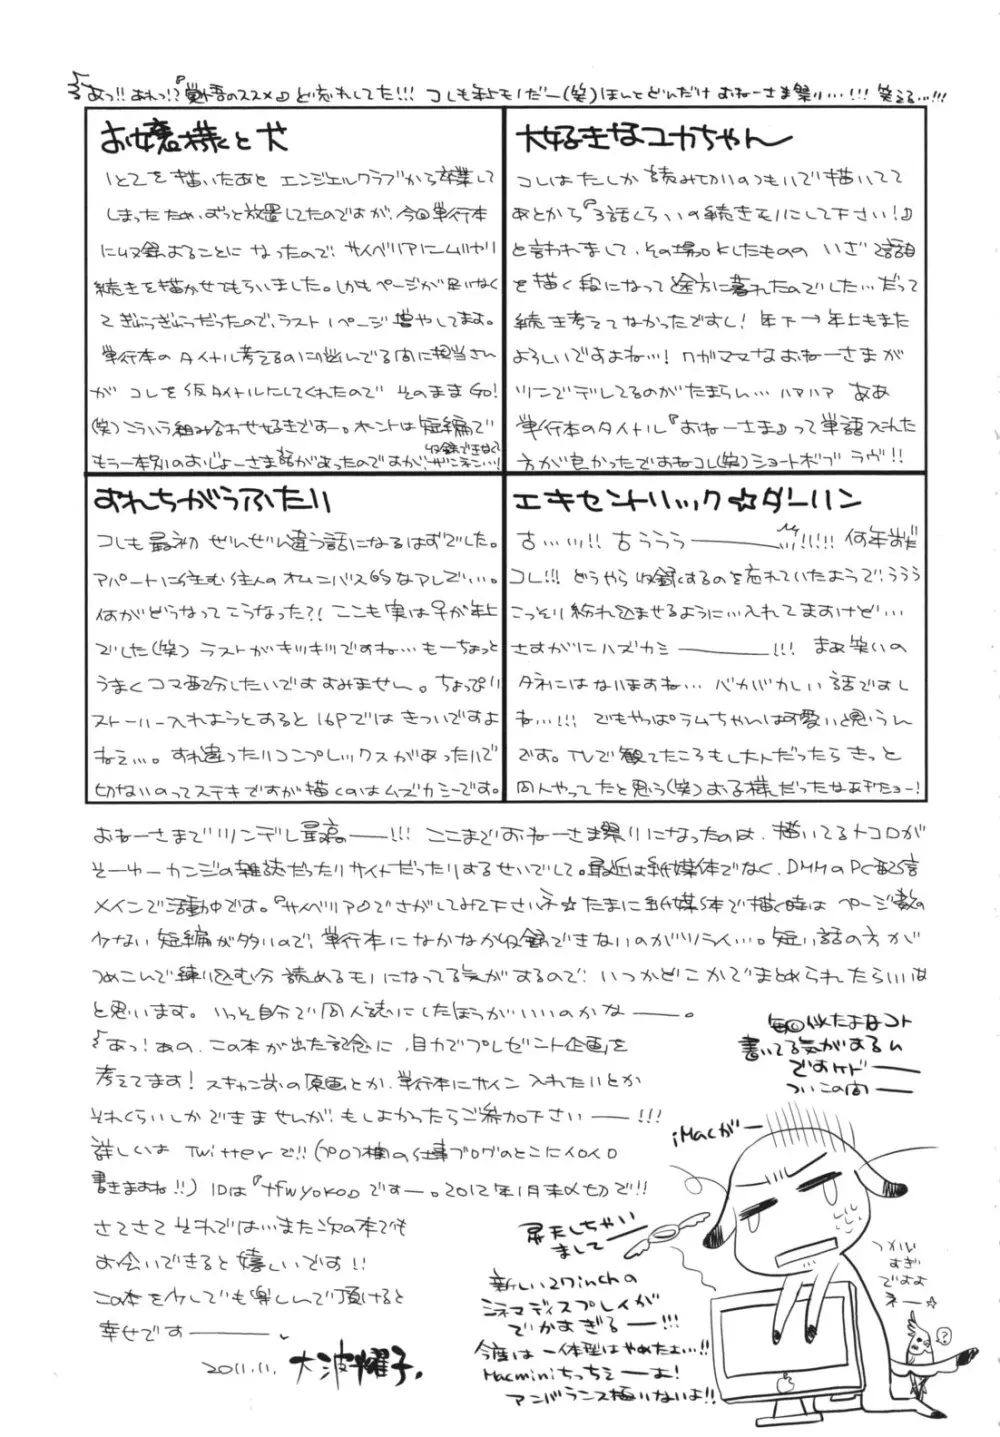 あっ!!あれっ!?『覚悟のススメ』ど忘れしてた!!!コレも年上モノだー(笑)ほんとどんだけおねーさま祭り…!!!笑える…!!!
お嬢様と犬
1と2を描いたあと エンジェルクラブから卒業して
しまったため、ずっと放置してたのですが、今回単行本
に収録することになったので、サイベリアにムリヤリ
続きを描かせてもらいました。しかもページが足りなく
てぎゅうぎゅうだったので、ラスト1ページ増やしてます。
単行本のタイトル考えるのに悩んでる間に担当さん
が コレを仮タイトルにしてくれたので そのままGO!
(笑)こういう組み合わせ好きですー。ホントは短編で
もう一本別のおじょーさま話があったのですが、収録できなくてザンネン…!
大好きなユカちゃん
コレはたしか読み切りのつもりで描いてて
あとから『3話くらいの続きモノにして下さい!』
と言われまして、その場はOKしたものの いざ2話目
を描く段になって途方に暮れたのでした…だって
続き考えてなかったですし!年下→年上もまた
よろしいですよね…!ワガママなおねーさまが
ツンでデレしてるのがたまらん…ハァハァ ああ
単行本のタイトル『おねーさま』って単語入れた
方が良かったですかねコレ(笑)ショートボブ ラヴ!!
すれちがうふたり
コレも最初 ぜんぜん違う話になるはずでした。
アパートに住む住人のオムニバス的なアレで…。
何がどうなってこうなった?!ここも実は♀が年上
でした(笑) ラストがキツキツですね…もーちょっと
うまくコマ配分したいですすみません。ちょっぴり
ストーリー入れようとすると16Pではきついですよ
ねぇ…。すれ違ったりコンプレックスがあったりで
切ないのってステキですが描くのはムズカシーです。
エキセントリック☆ダーリン
古…ッ!!古ううう――――!!!!!何年前だ
コレ!!!どうやら収録するのを忘れていたようで、ううう
こっそり紛れ込ませるように…入れてますけど…
さすがにハズカシ――――!!!まあ笑いの
タネにはなりますね…バカバカしい話ですし
ね…!!!でもやっぱラムちゃんは可愛いと思うん
です。TVで観てたころもし大人だったらきっと
同人やってたと思う(笑)お子様だったなあチキショー!
おねーさまでツンデレ最高――!!!ここまでおねーさま祭りになったのは、描いてるトコロが
そーゆーカンジの雑誌だったりサイトだったりするせいでして。最近は紙媒体でなく、DMMのPC配信
メインで活動中です。『サイベリア』でさがしてみて下さいネ☆たまに紙媒体で描く時はページ数の
少ない短編が多いので、単行本になかなか収録できないのがツライ…。短い話の方が
つめこんで練り込む分 読めるモノになってる気がするので、いつかどこかでまとめられたらいいな
と思います。いっそ自分で同人誌にしたほうがいいのかな――。
あっ!あの、この本が出た記念に、自力でプレゼント企画を
考えてます!スキャン前の原画とか、単行本にサイン入れたいとか
それくらいしかできませんが、もしよかったらご参加下さい――!!!
詳しくは Twitterで!!(プロフ欄の仕事ブログのとこにイロイロ
書きますね!!) IDは『tfwyoko』ですー。2012年1月末〆切で!!
さてさて それでは…また次の本でも
お会いできると嬉しいです!!
この本を少しでも楽しんで頂けると
幸せです――――。
2011.11. 大波耀子。
毎回似たよなコト
書いてる気がするん
ですケド――
ついこの間――
iMacが―
昇天しちゃい
まして――
新しい27inchの
シネマディスプレイが
でかすぎる――!!!
今度は一体型はやめたよ…!!
Macminiちっちぇーよ!
アンバランス極まりないよ!!
つかい
すぎ
ですよ
ネー☆
?